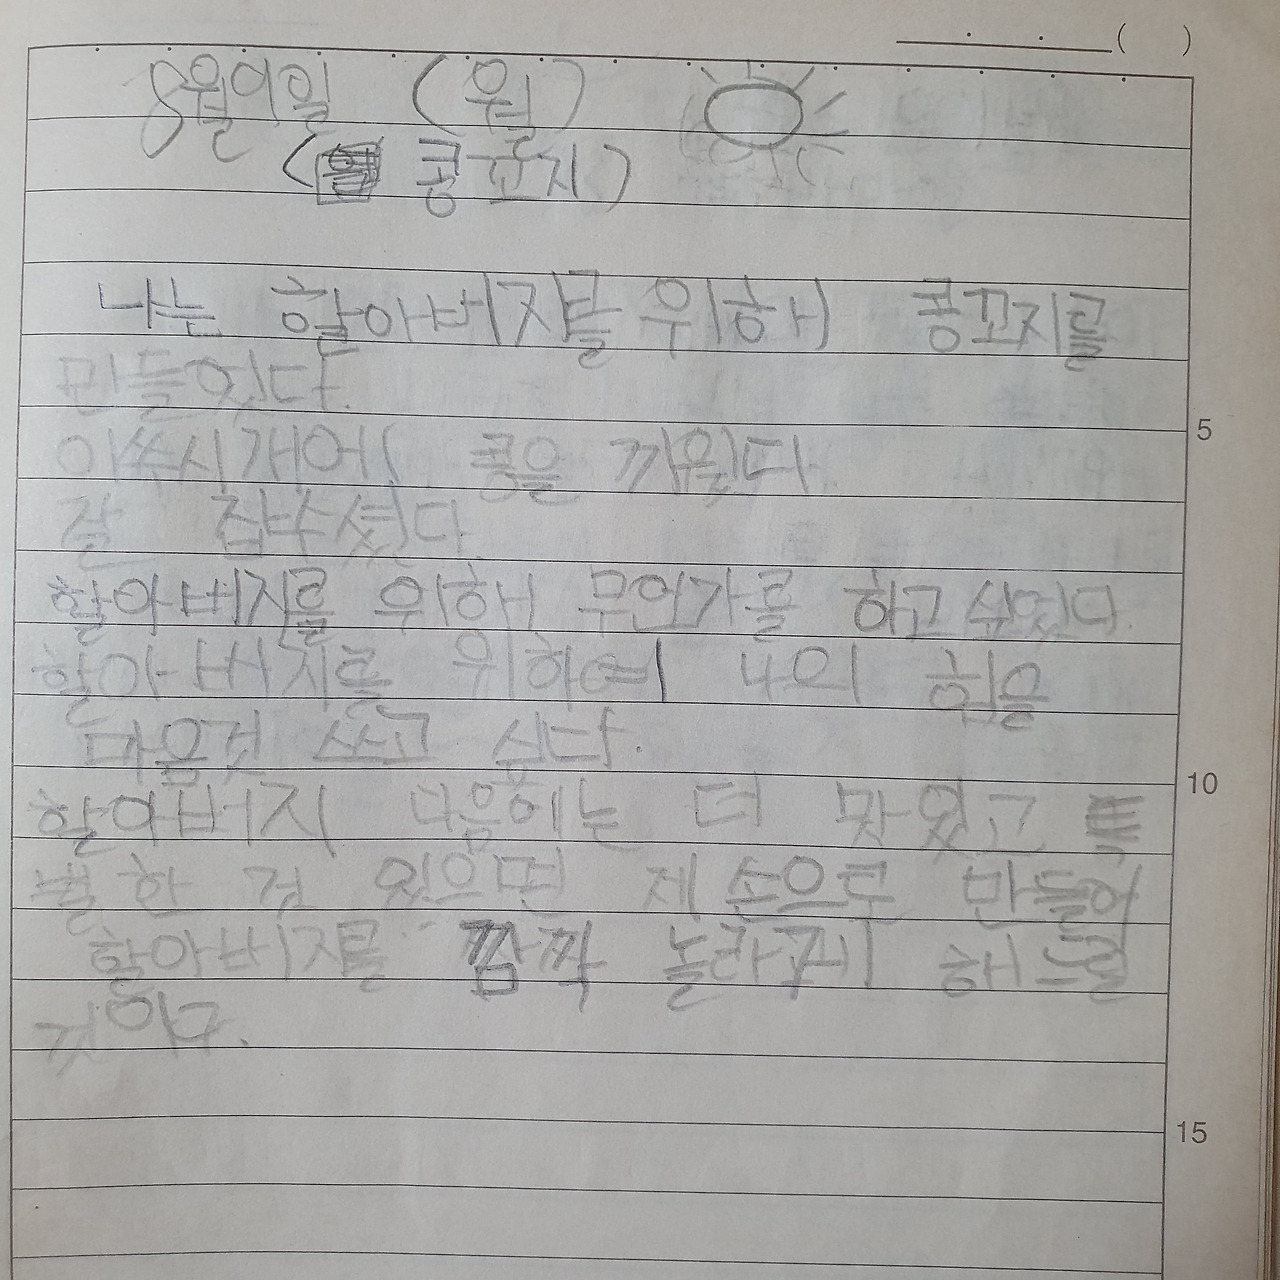 8월이일 (월)
(콩꼬지)
나는 할아버지를 위해 콩꼬지를
만들었다.
이쑤시개에 콩을 끼웠다.
잘 잡수셨다.
할아버지를 위해 무언가를 하고 싶었다.
할아버지를 위하여 나의 힘을
마음껏 쓰고 싶다.
할아버지 다음에는 더 맛있고
특별한 것 있으면 제 손으로 만들어
할아버지를 깜짝 놀라게 해드릴
것이다.
( )
5
10
15